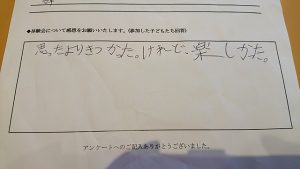 ●体験会について感想をお願いいたします。(参加した子どもたち回答)
思ったよりきつかった。けれど、楽しかった。
アンケートへのご記入ありがとうございました。